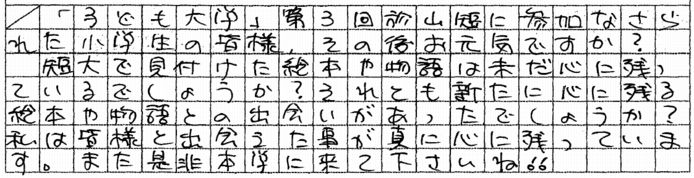 「子ども大学」第3回郡山短に参加なさら
れた小学生の皆様、その後お元気ですか?
短大で見付けた絵本や物語は未だ心に残っ
ているでしょうか?それとも新たに心に残る
絵本や物語との出会いがあったでしょうか?
私は皆様と出会えた事が真に心に残っていま
す。また是非本学に来て下さいね!!